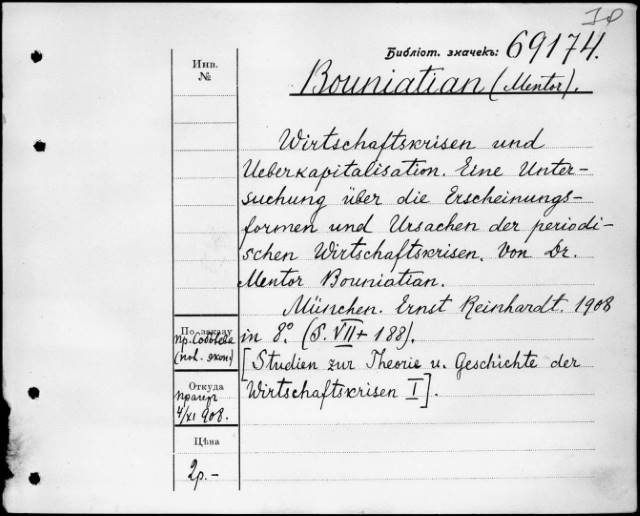 Библіот. значекъ: 69174.
Инв.
№
Bouniatian (Mentor).
Wirtschaftskrisen und
Ueberkapitalisation. Eine Unter-
suchung über die Erscheinungs-
formen und Ursachen der periodi-
schen Wirtschaftskrisen. Von Dr.
Mentor Bouniatian.
München. Ernst Reinhardt. 1908
in 8° (S. VII + 188).
[Studien zur Theorie u. Geschichte der
Wirtschaftskrisen I].
По заказу
пр. Соболева
(пол. экон)
Откуда
4/XI 908.
Цѣна
2р.-